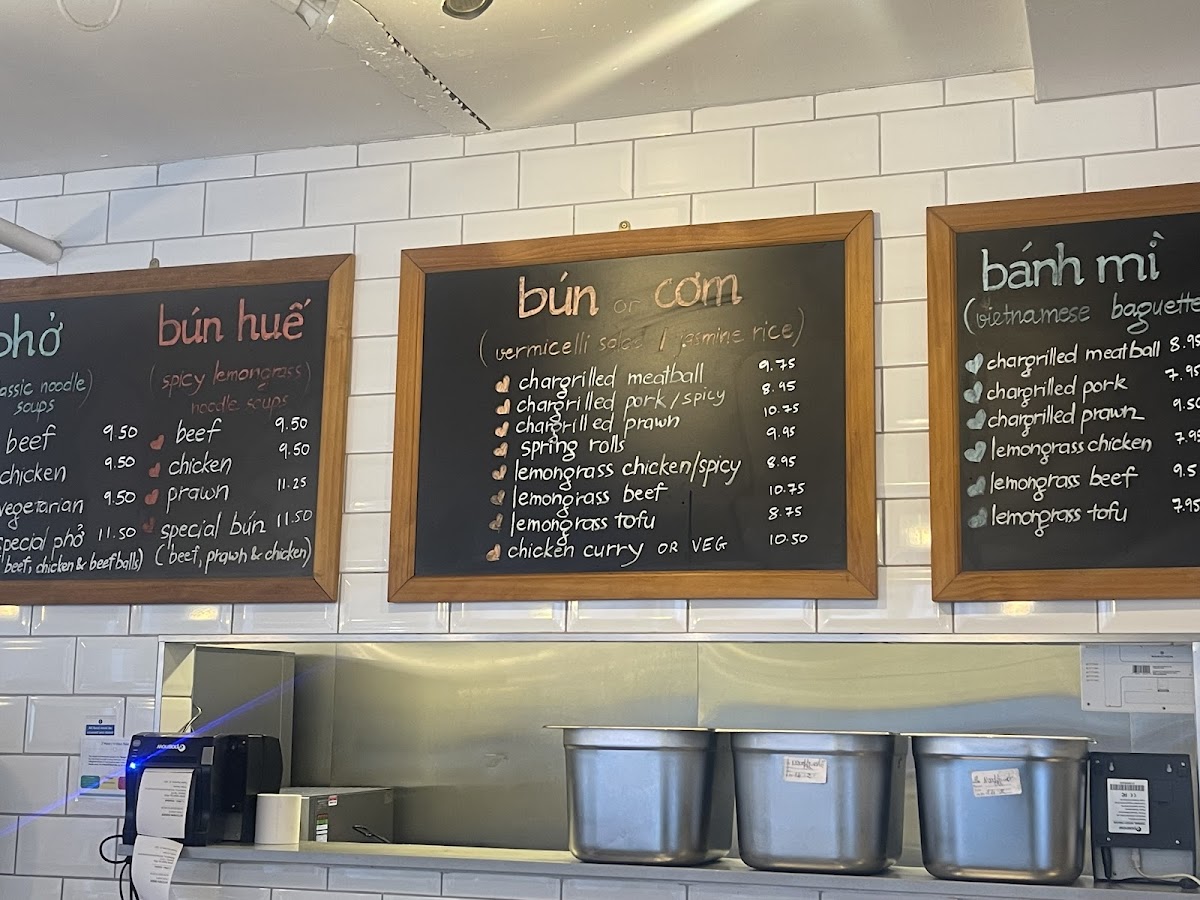 phở
(classic noodle)
soups
beef 9.50
chicken 9.50
vegetarian 9.50
special phở 11.50
beef, chicken & beef balls)
bún huế
(spicy lemongrass)
noodle soups
beef 9.50
chicken 9.50
prawn 11.25
special bún 11.50
(beef, prawn & chicken)
bún or cơm
(vermicelli salad / jasmine rice)
chargrilled meatball 9.75
chargrilled pork/spicy 8.95
chargrilled prawn 10.75
spring rolls 9.95
lemongrass chicken/spicy 8.95
lemongrass beef 10.75
lemongrass tofu 8.75
chicken curry OR VEG 10.50
bánh mì
(vietnamese baguette
chargrilled meatball 8.95
chargrilled pork 7.95
chargrilled prawn 9.50
lemongrass chicken 7.95
lemongrass beef 9.5
lemongrass tofu 7.95